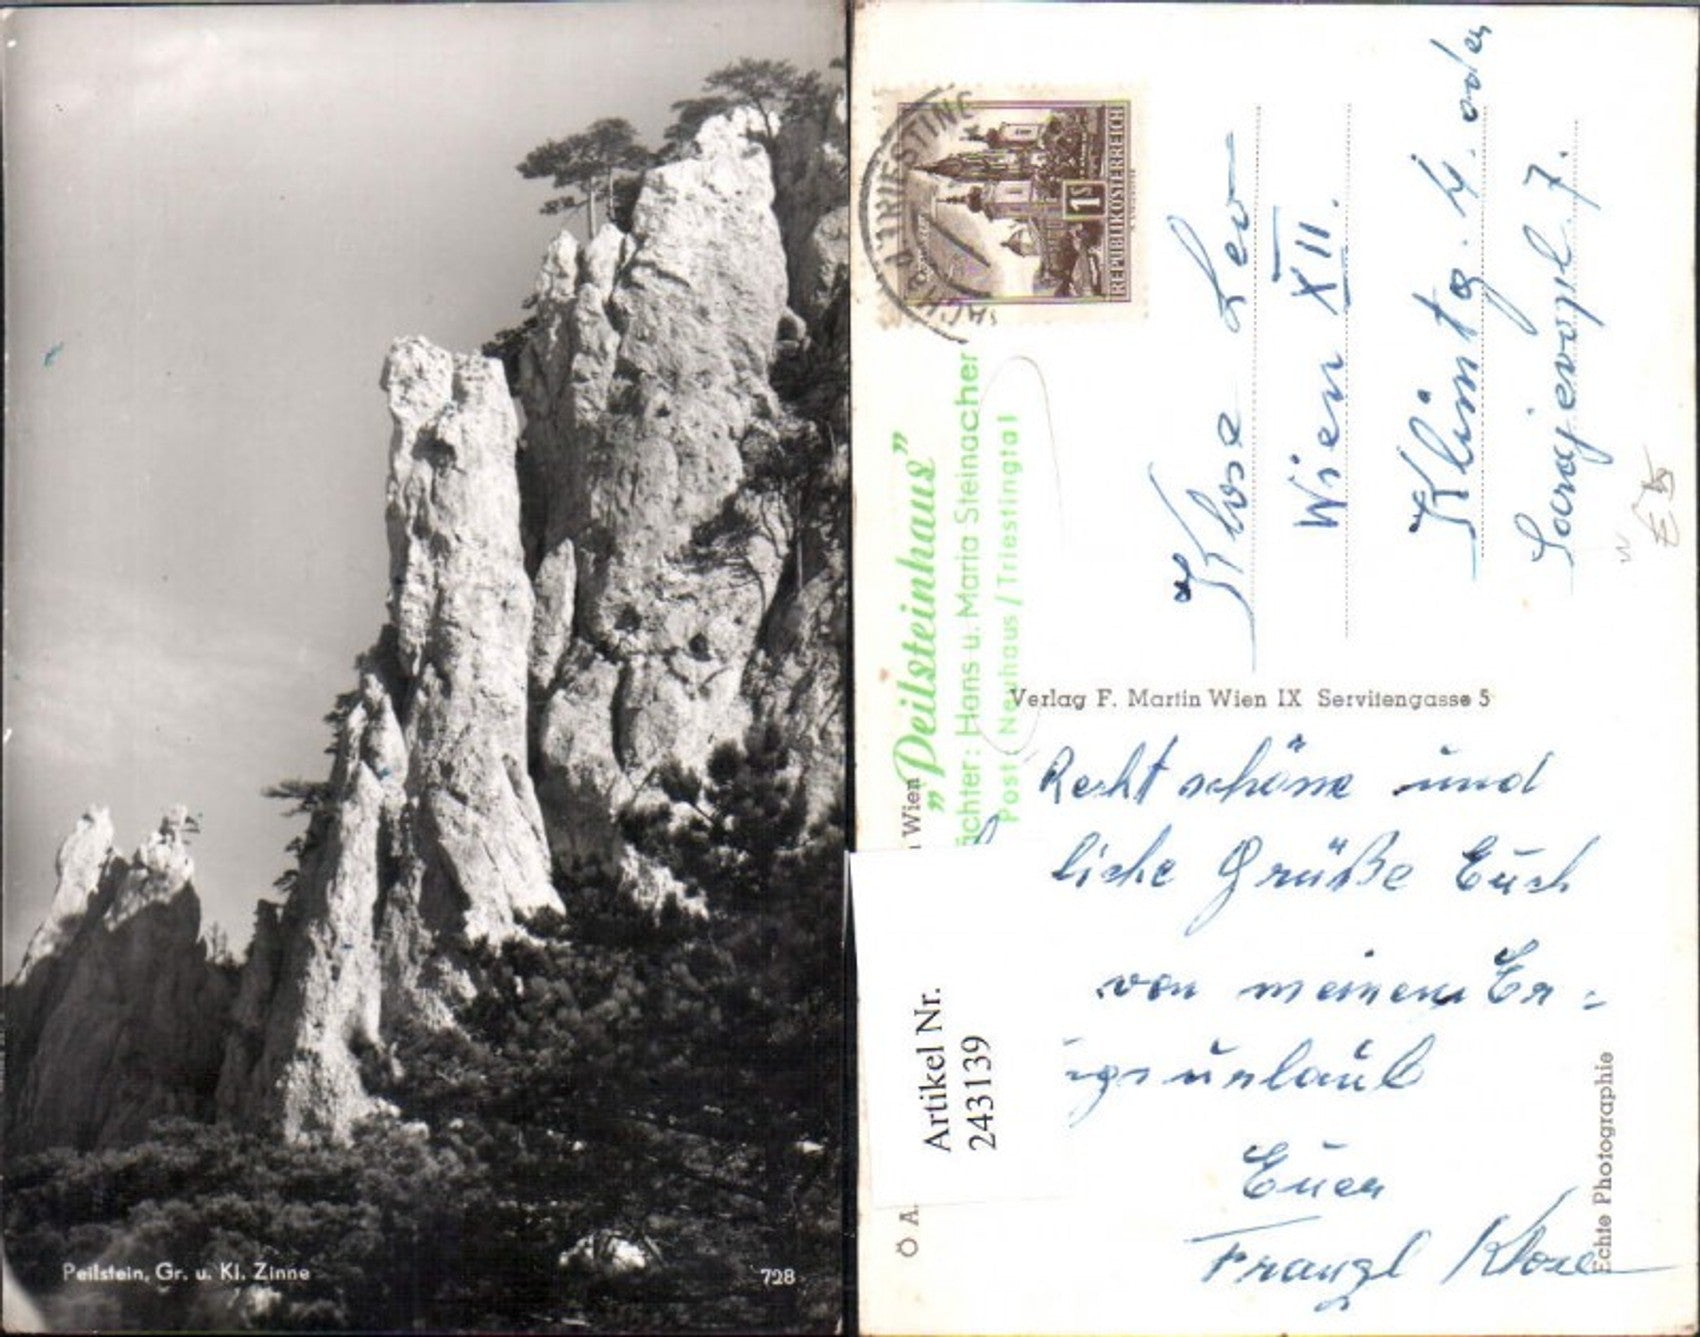 Peilstein, Gr. u. Kl. Zinne
728
REPUBLIK ÖSTERREICH
1S
„Peilsteinhaus”
ächter: Hans u. Maria Steinacher
Post: Neuhaus / Triestingtal
Klose Leo
Wien XII.
Klimtg. 4. oder
Sarajevopl. 7.
Verlag F. Martin Wien IX Servitengasse 5
Wien
Recht schöne und
liche Grüße Euch
von meinem Er=
gsurlaub
Euer
Franzl Klose
Artikel Nr.
243139
Ö A.
Echte Photographie